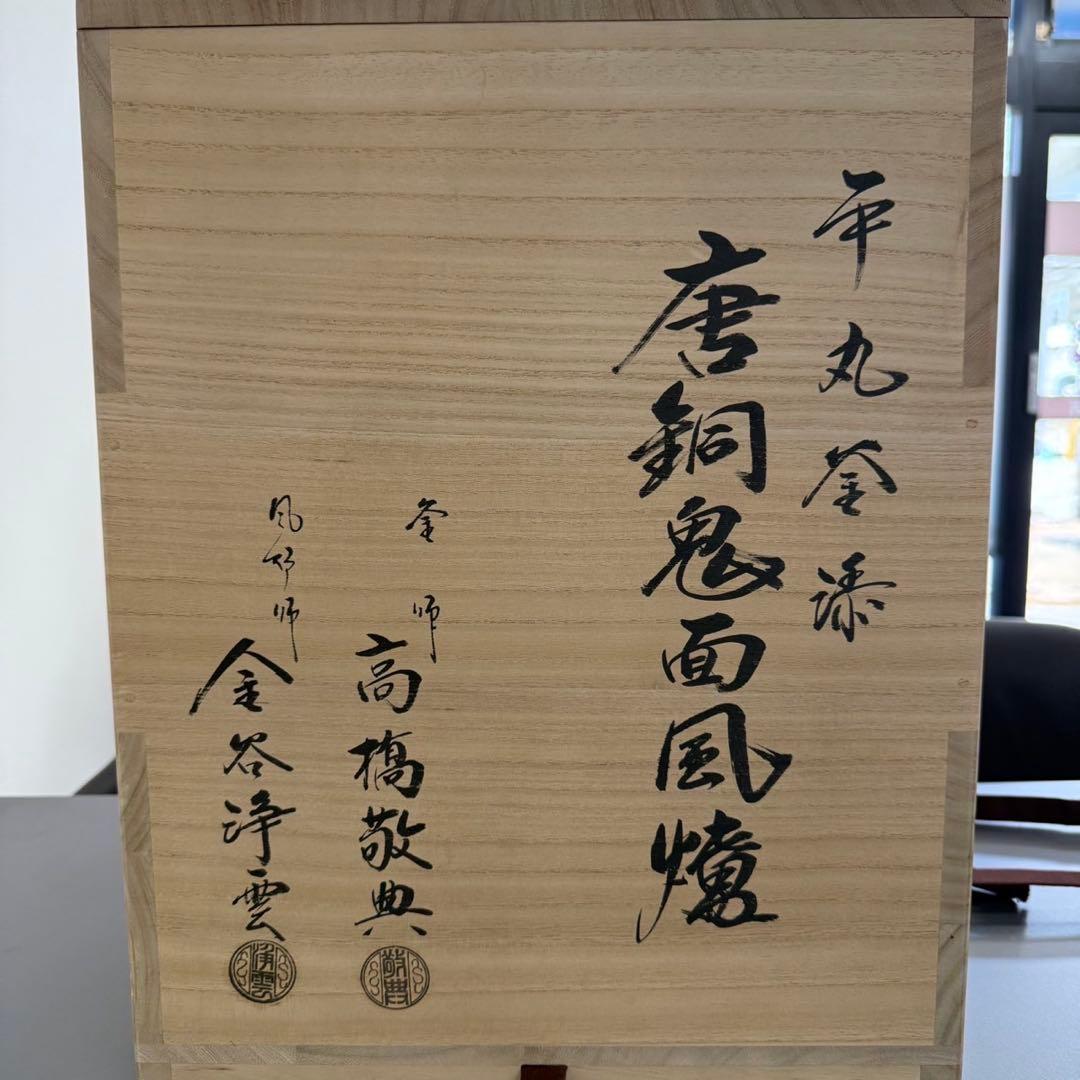 平丸釜添
唐銅鬼面風爐
釜師
高橋敬典
敬典
風炉師
金谷浄雲
浄雲